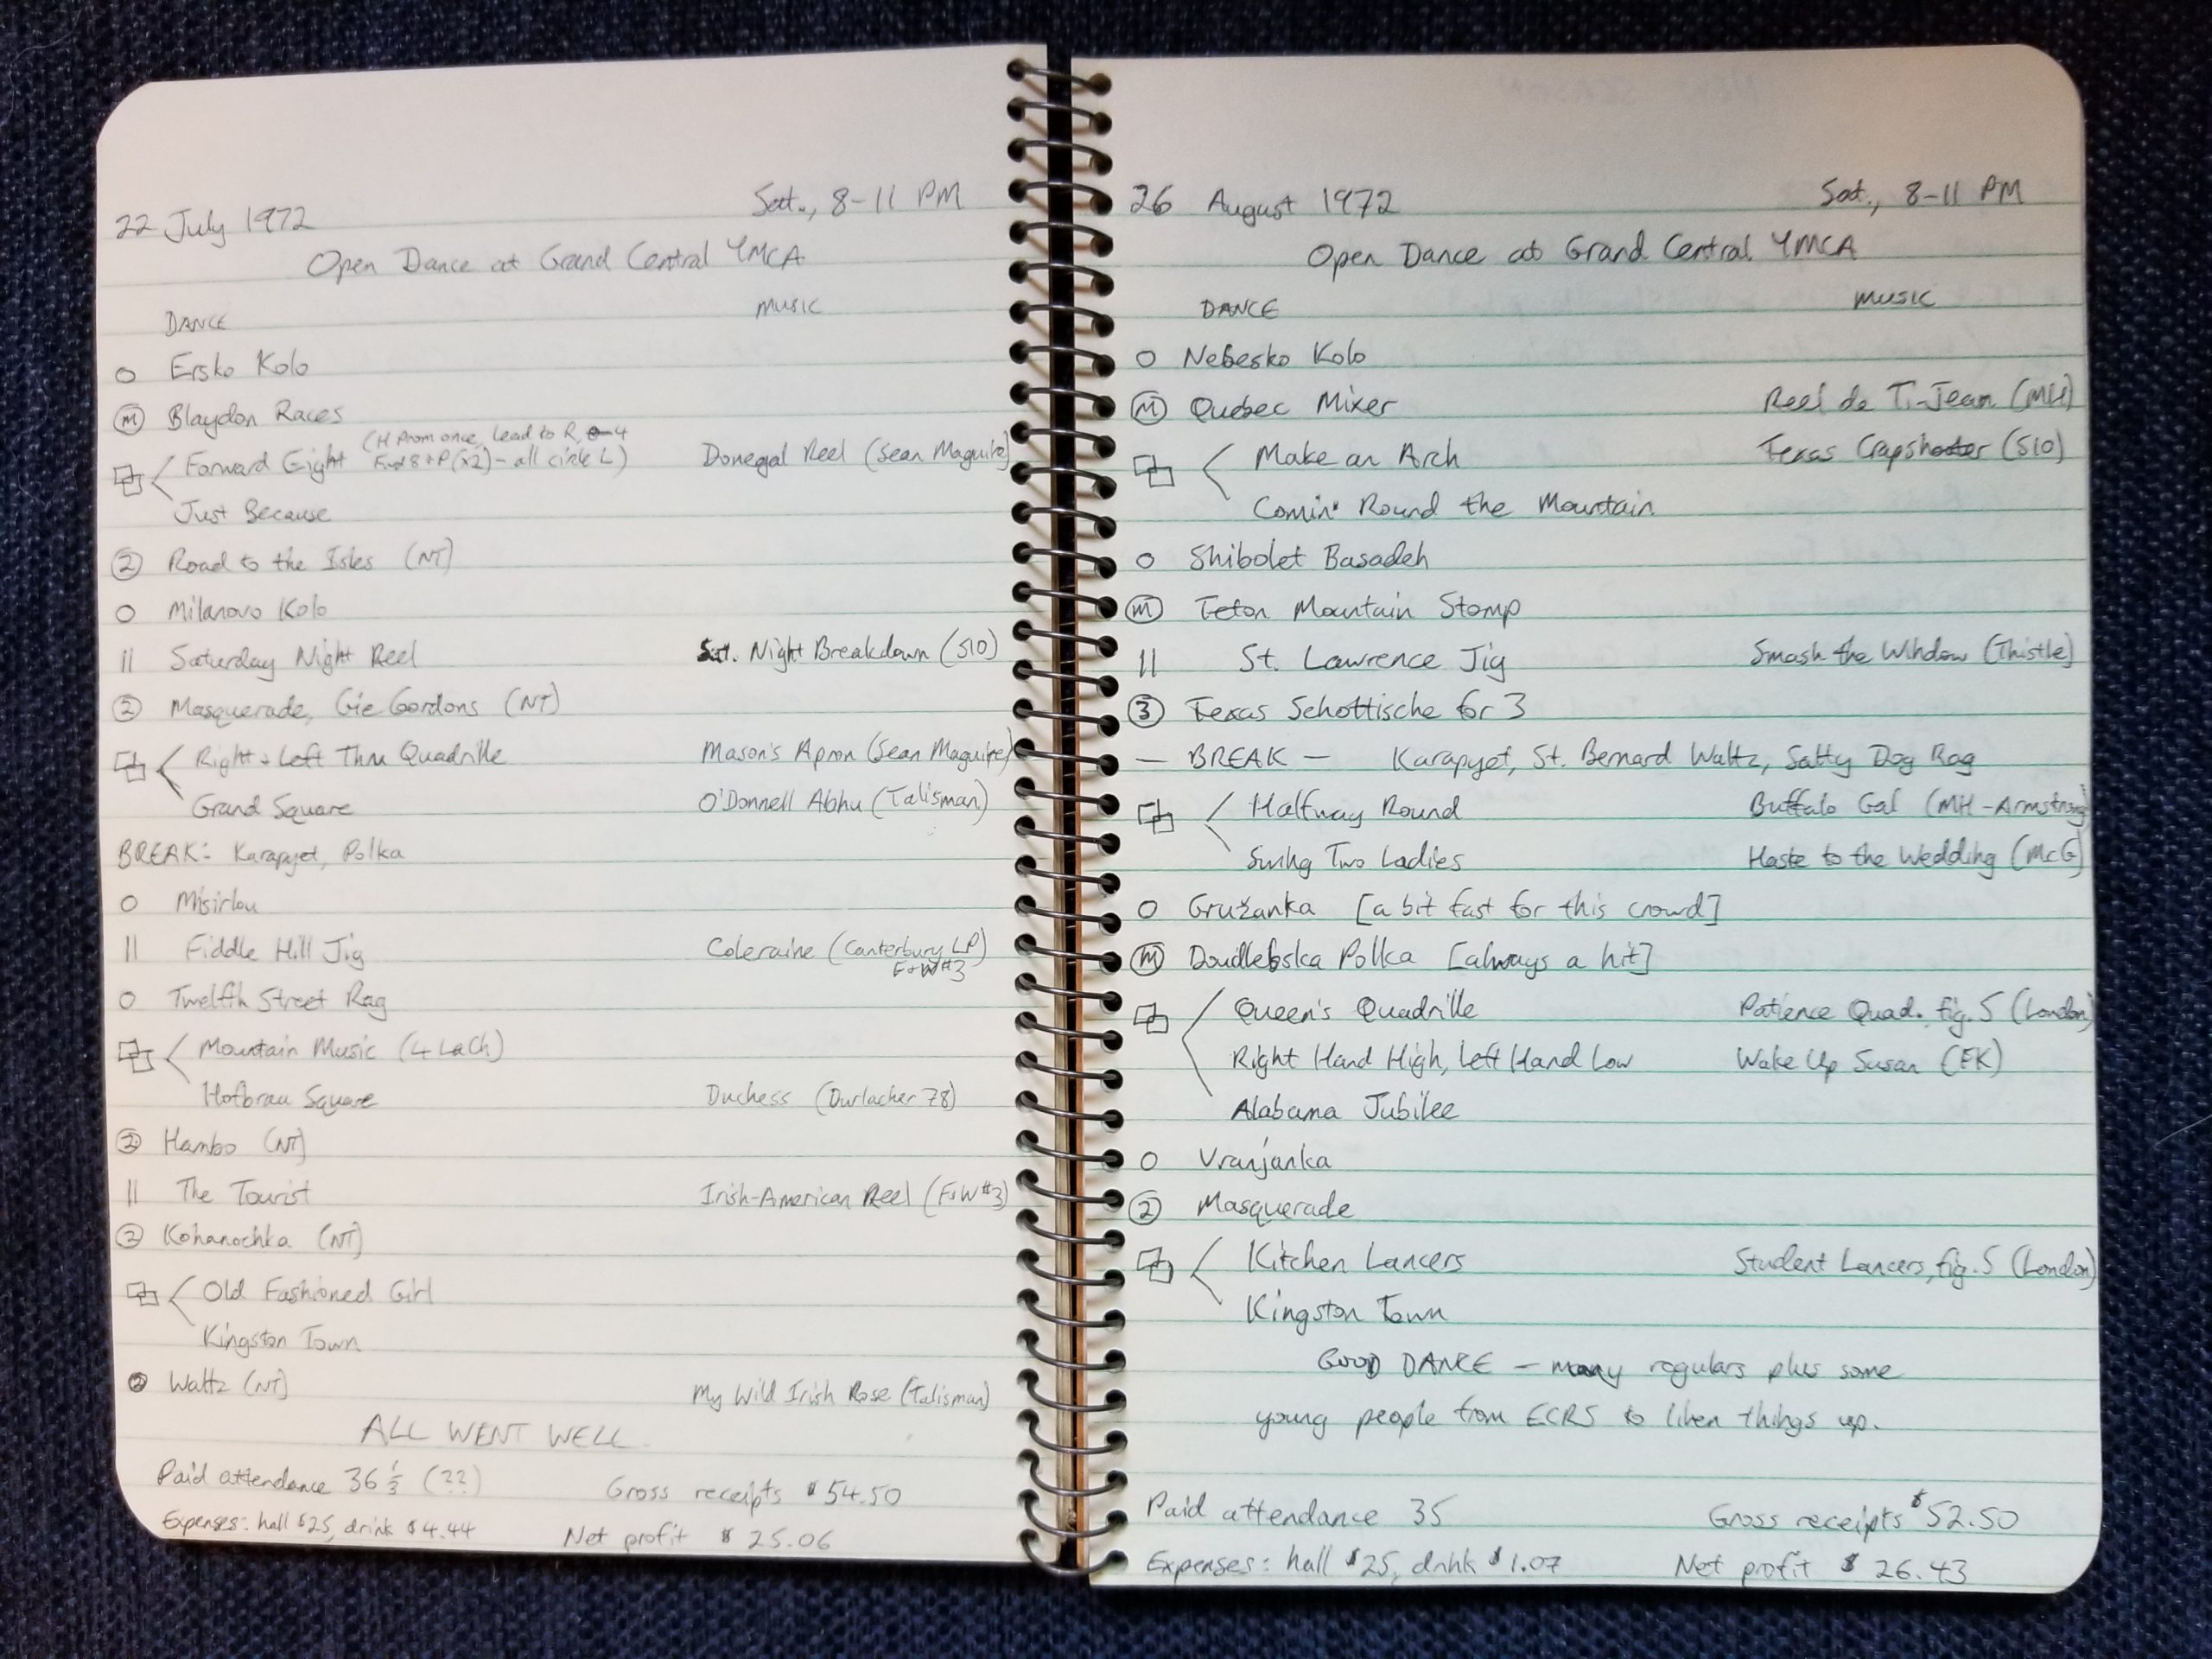 22 July 1972 Sat., 8-11 PM
Open Dance at Grand Central YMCA
DANCE MUSIC
O Ersko Kolo
Ⓜ Blaydon Races
(H Prom once, lead to R, 4
Forward Eight Fwd 8+P (x2) - all circle L) Donegal Reel (Sean Maguire)
Just Because
② Road to the Isles (NT)
O Milanovo Kolo
|| Saturday Night Reel Sat. Night Breakdown (S10)
② Masquerade, Gie Gordons (NT)
Right + Left Thru Quadrille Mason's Apron (Sean Maguire)
Grand Square O'Donnell Abhu (Talisman)
BREAK: Karapyet, Polka
O Misirlou
|| Fiddle Hill Jig Coleraine (Canterbury LP)
F+W#3
O Twelfth Street Rag
Mountain Music (4 LaCh)
Hofbrau Square Duchess (Durlacher 78)
② Hambo (NT)
|| The Tourist Irish-American Reel (F+W#3)
② Kohanochka (NT)
Old Fashioned Girl
Kingston Town
② Waltz (NT) My Wild Irish Rose (Talisman)
ALL WENT WELL.
Paid attendance 36 1/3 (??) Gross receipts $54.50
Expenses: hall $25, drink $4.44 Net profit $25.06
26 August 1972 Sat., 8-11 PM
Open Dance at Grand Central YMCA
DANCE MUSIC
O Nebesko Kolo
Ⓜ Quebec Mixer Reel de Ti-Jean (MH)
Make an Arch Texas Crapshooter (S10)
Comin' Round the Mountain
O Shibolet Basadeh
Ⓜ Teton Mountain Stomp
|| St. Lawrence Jig Smash the Window (Thistle)
③ Texas Schottische for 3
— BREAK — Karapyet, St. Bernard Waltz, Salty Dog Rag
Halfway Round Buffalo Gal (MH-Armstrong)
Swing Two Ladies Haste to the Wedding (McG)
O Gružanka [a bit fast for this crowd]
Ⓜ Doudlebska Polka [always a hit]
Queen's Quadrille Patience Quad. fig. 5 (London)
Right Hand High, Left Hand Low Wake Up Susan (FK)
Alabama Jubilee
O Vranjanka
② Masquerade
Kitchen Lancers Student Lancers, fig. 5 (London)
Kingston Town
GOOD DANCE — many regulars plus some
young people from ECRS to liven things up.
Paid attendance 35 Gross receipts $52.50
Expenses: hall $25, drink $1.07 Net profit $26.43